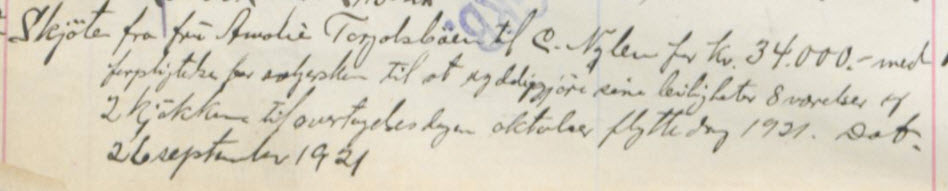 Skjöte fra fru Amalie Torjolsböen til C. Nylen for kr. 34.000.- med
forpligtelse for sælgersken til at ryddiggjöre sine leiligheter 8 værelser og
2 kjökken til overtagelsesdagen oktober flyttedag 1921. Dat.
26 september 1921